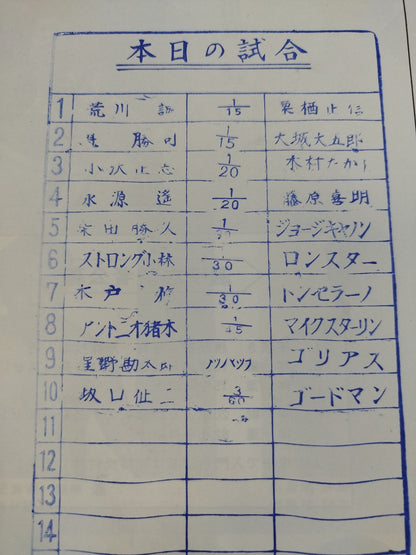 本日の試合
1 荒川 誠 1/15 栗栖正伸
2 勝司 1/15 大城大五郎
3 小沢正志 1/20 木村たかし
4 永源遥 1/20 藤原喜明
5 柴田勝久 ジョージキャノン
6 ストロング小林 1/30 ロンスター
7 木戸 修 1/30 ドンセラーノ
8 アントニオ猪木 1/45 マイクスターリン
9 星野勘太郎 ゴリアス
10 坂口征二 3/60 ゴードマン
11
12
13
14